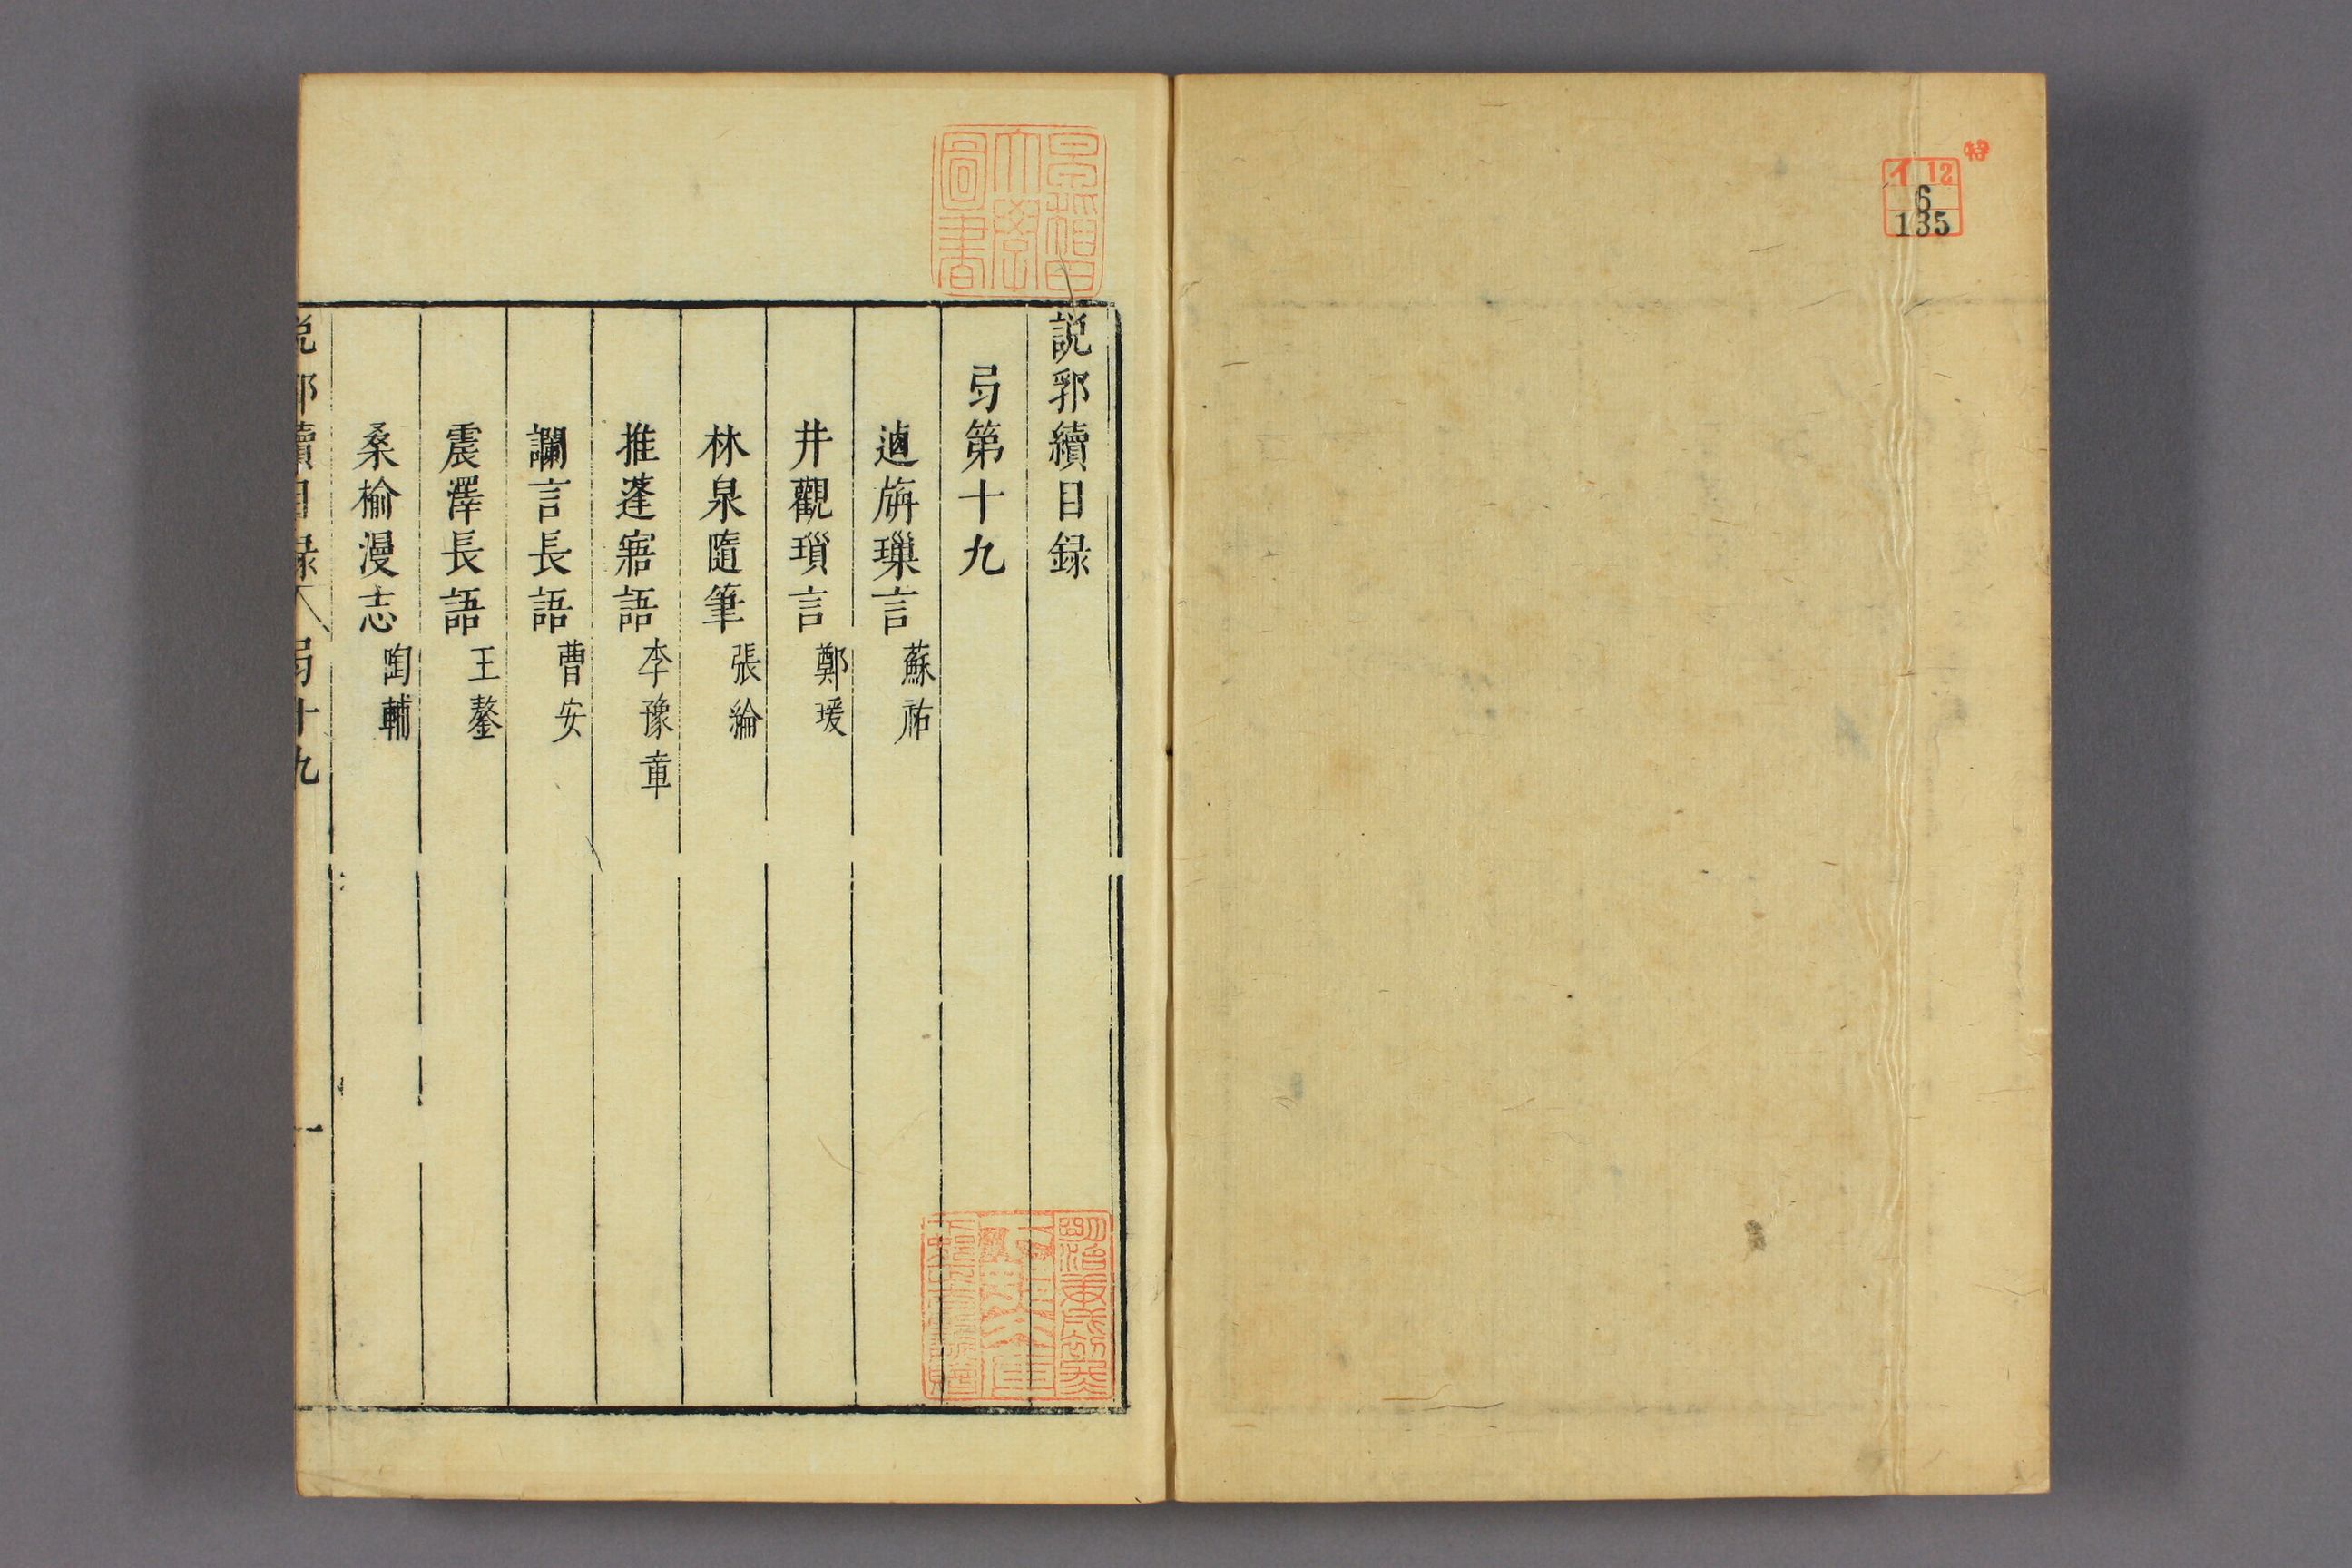 特
イ 12
6
135
早稻田
大學
圖書
説郛續目録
弓第十九
逌旃璅言 蘇祐
井觀瑣言 鄭瑗
林泉隨筆 張綸
推蓬寤語 李豫章
讕言長語 曹安
震澤長語 王鏊
桑榆漫志 陶輔
説郛續目録 弓十九 一